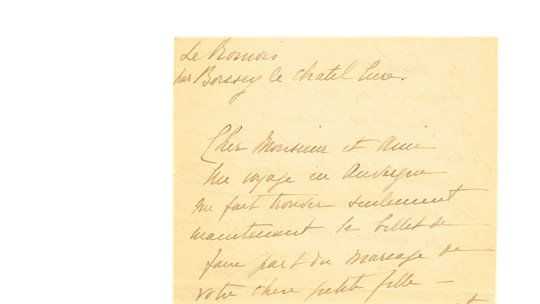 Le Romois
par Boissey le Chatel Eure.
Cher Monsieur et Ami
Un voyage en Auvergne
me fait trouver seulement
maintenant le billet de
faire part du mariage de
votre chère petite fille —